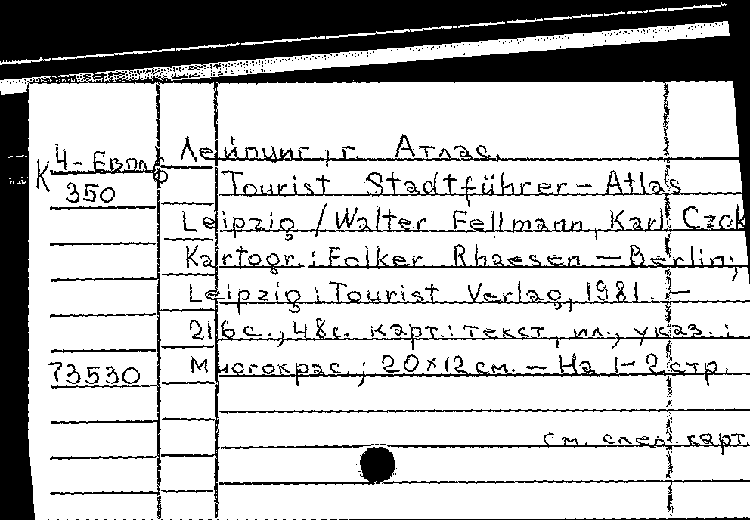 К 4-Европ6
350
Лейпциг, г. Атлас.
Tourist Stadtführer-Atlas
Leipzig / Walter Fellmann, Karl Czok
Kartogr.: Folker Rhaesen — Berlin;
Leipzig: Tourist Verlag, 1981. —
216 с., 48 с. карт.: текст, ил., указ.;
73530
Многокрас.; 20×12 см. — На 1-2 стр.
см. след. карт.